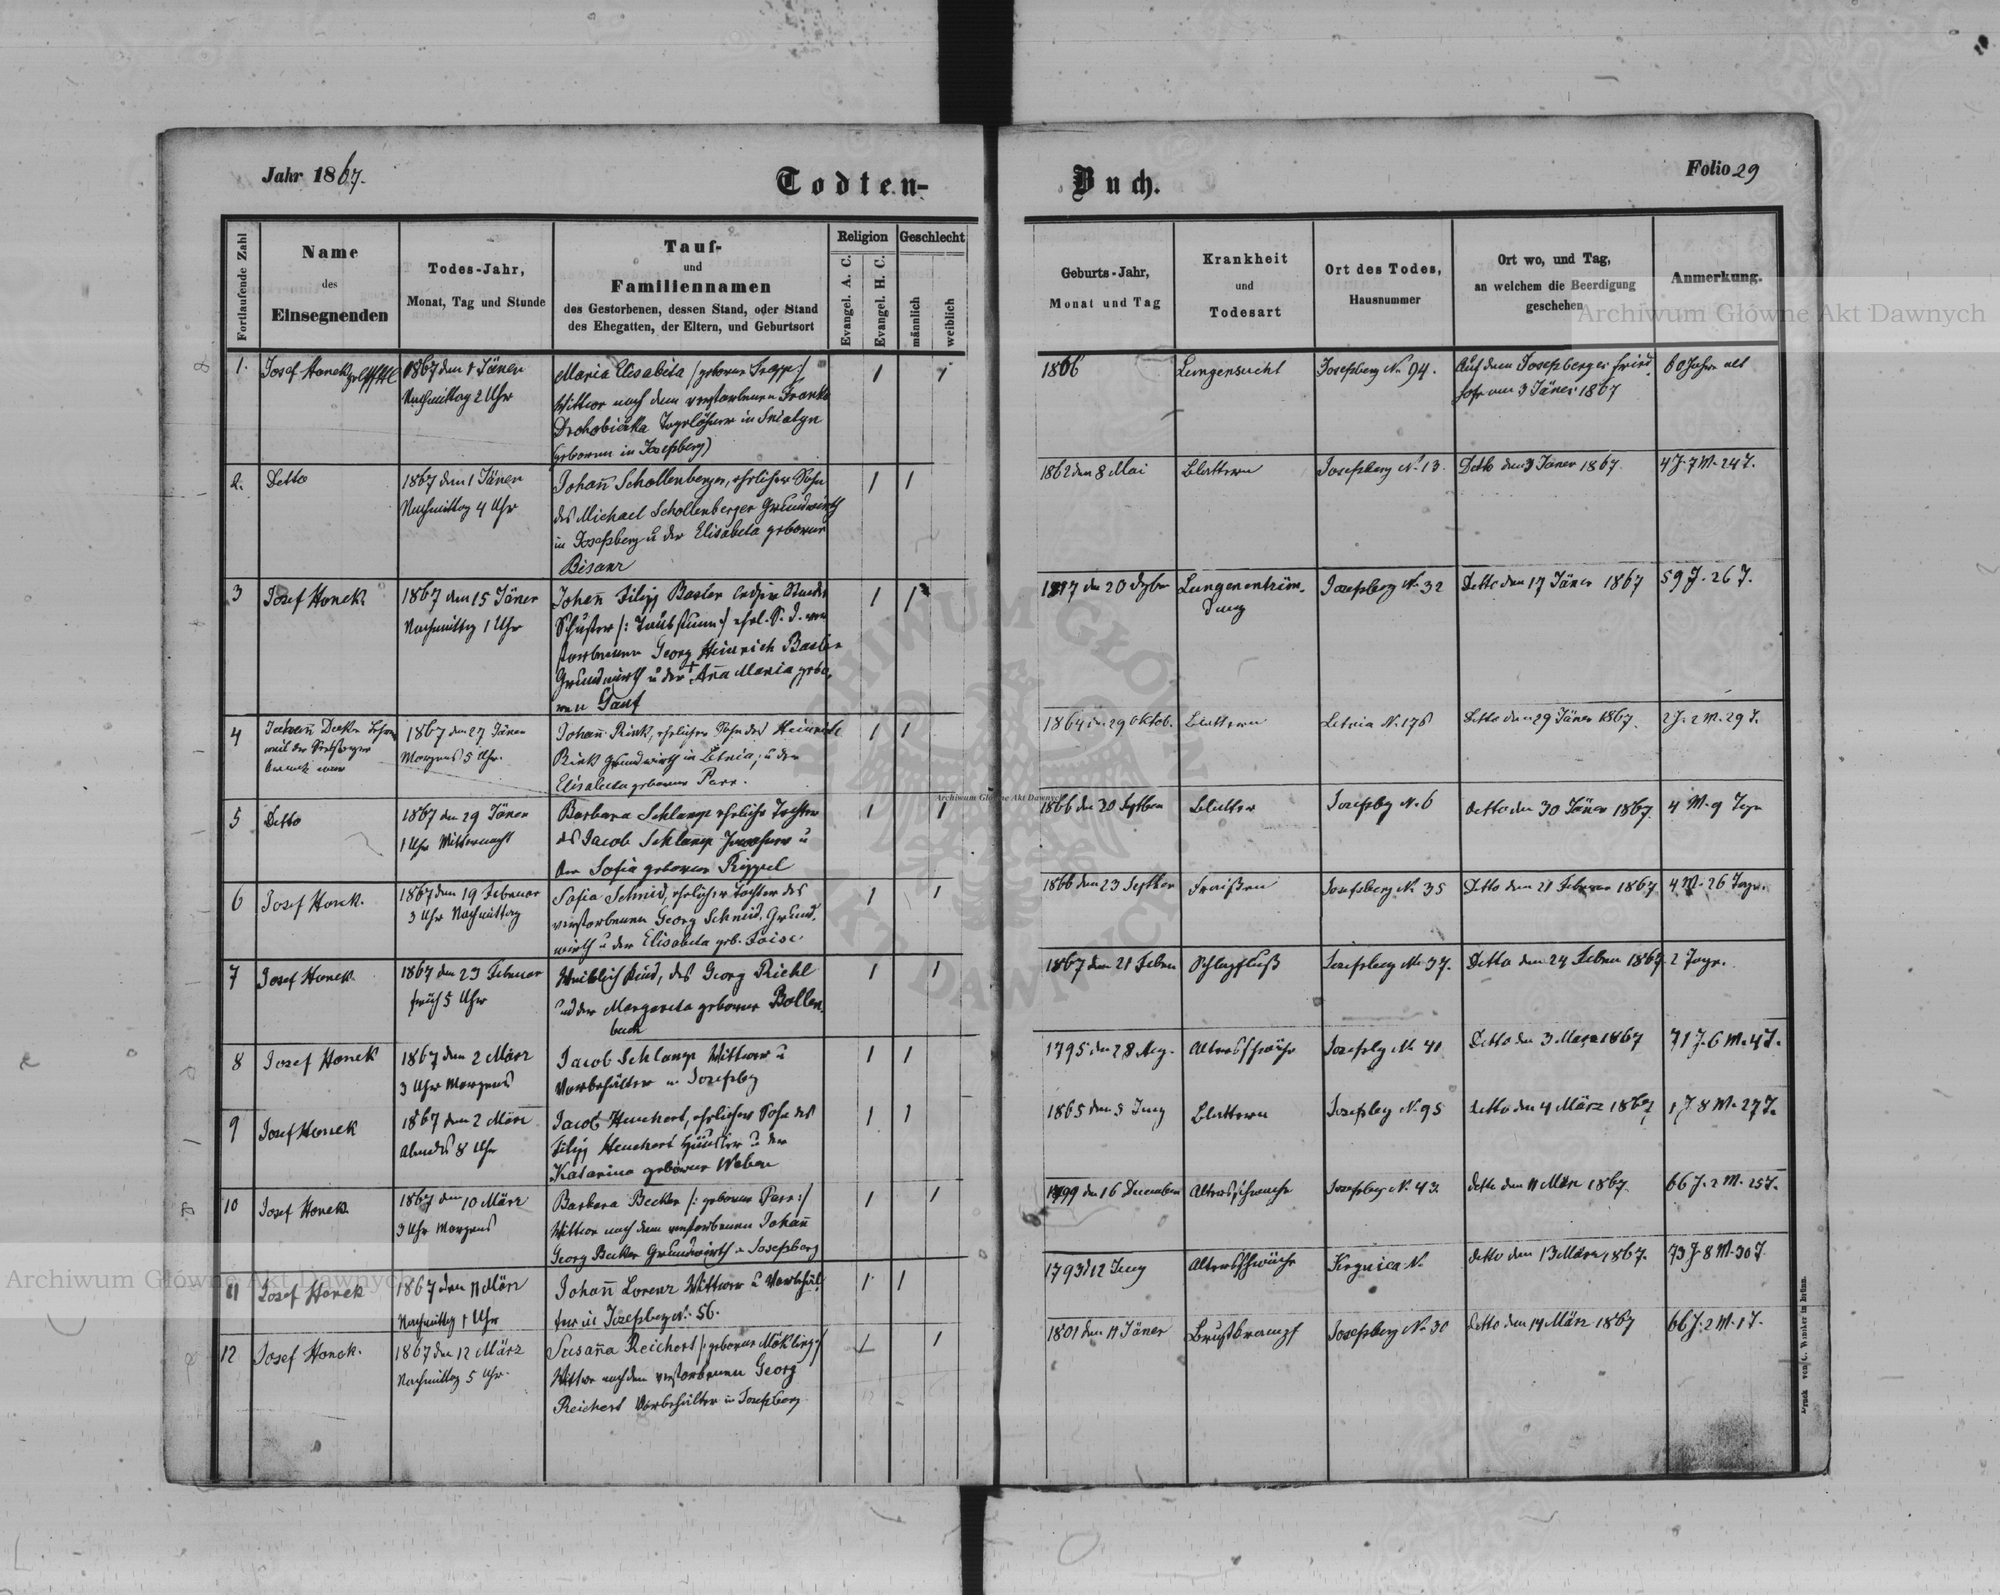 Jahr 1867.
Todten-
Buch.
Folio 29
Fortlaufende Zahl
Name
des
Einsegnenden
Todes-Jahr,
Monat, Tag und Stunde
Tauf-
und
Familiennamen
des Gestorbenen, dessen Stand, oder Stand
des Ehegatten, der Eltern, und Geburtsort
Religion
Evangel. A. C.
Evangel. H. C.
Geschlecht
männlich
weiblich
Geburts-Jahr,
Monat und Tag
Krankheit
und
Todesart
Ort des Todes,
Hausnummer
Ort wo, und Tag,
an welchem die Beerdigung
geschehen
Anmerkung.
1.
Josef Honek
1867 den 1 Jäner
Nachmittag 2 Uhr
Maria Elisabeta /geborene
Wittwe nach dem verstorbenen Franko
Taglöhner in
geboren in Josefsberg)
1866
Lungensucht
Josefsberg No 94.
Auf dem Josefsberger Fried
hofe am 3 Jäner 1867
60 Jahre alt
2.
Detto
1867 den 1 Jäner
Nachmittag 4 Uhr
Johañ Schollenberger, ehelicher Sohn
des Michael Schollenberger Grundwirth
in Josefsberg u der Elisabeta geborene
Bisanz
1862 den 8 Mai
Blattern
Josefsberg No 13.
Detto den 3 Jäner 1867.
4 J. 7 M. 24 T.
3
Josef Honek.
1867 den 15 Jäner
Nachmittag 1 Uhr
Johañ Filipp Basler
Schuster /: Taubstumm :/ ehel. S. d. ver
storbenen Georg Heinrich Basler
Grundwirth u der + Aña Maria gebo,
rene
den 20
Josefsberg No 32
Detto den 17 Jäner 1867
59 J. 26 T.
4
1867 den 27 Jäner
Morgens 5 Uhr.
Johañ Rink, ehelicher Sohn des Heinrich
Rink Grundwirth in Letnia, u der
Elisabeta geborene Parr.
1864 den 29 Oktob.
Blattern
Letnia No 176
Detto den 29 Jäner 1867.
2 J. 2 M. 29 T.
5
Detto
1867 den 29 Jäner
1 Uhr Mitternacht
Barbara Schlamp eheliche Tochter
des Jacob Schlamp Inwohner u
der Sofia geborene Rippel
1866 den 30 Septber
Blatter
Josefsbg No 6
detto den 30 Jäner 1867.
4 M. 9 Tage
6
Josef Honek.
1867 den 19 Februar
3 Uhr Nachmittag
Sofia Schmid, ehelicher Tochter des
verstorbenen Georg Schmid, Grund,
wirth u der Elisabeta geb.
1866 den 23 Septber
Fraißen
Josefsberg No 35
Detto den 21 Februar 1867
4 M. 26 Tage.
7
Josef Honek
1867 den 23 Februar
früh 5 Uhr
Weiblich Kind, des Georg Riehl
und der Margareta geborene Bollen,
bach
1867 den 21 Feber
Schlagfluß
Josefsberg No 37.
Detto den 24 Feber 1867
2 Tage.
8
Josef Honek
1867 den 2 März
3 Uhr Morgens
Jacob Schlamp Wittwer u
Vorbehälter in Josefsbg
1795 den 28 Aug.
Altersschwäche
Josefsbg No 41
Detto den 3 März 1867
71 J. 6 M. 4 T.
9
Josef Honek
1867 den 2 März
Abends 8 Uhr
Jacob Heuchert, ehelicher Sohn des
Filipp Heuchert Häusler u der
Katarina geborene Weber
1865 den 5 Juny
Blattern
Josefsbg No 95
detto den 4 März 1867
1 J 8 M. 27 T.
10
Josef Honek
1867 den 10 März
3 Uhr Morgens
Barbara Becker /: geborene Parr :/
Wittwe nach dem verstorbenen Johañ
Georg Becker Grundwirth in Josefsberg
1799 den 16 December
Altersschwäche
Josefsbg No 43.
detto den 11 März 1867.
66 J. 2 M. 25 T.
11
Josef Honek
1867 den 11 März
Nachmittag 1 Uhr
Johañ Lorenz Wittwer u Vorbehäl,
ter in Josefsberg No 56.
1793 d 12 Juny
Altersschwäche
No
detto den 13 März 1867.
73 J. 8 M. 30 T.
12
Josef Honek.
1867 den 12 März
Nachmittag 5 Uhr.
Susaña Reichert /: geborene
Wittwe nach dem verstorbenen Georg
Reichert Vorbehälter in Josefsberg
1801 den 11 Jäner
Brustkrampf
Josefsberg No 30
detto den 14 März 1867
66 J. 2 M. 1 T.
Archiwum Główne Akt Dawnych
Archiwum Główne Akt Dawnych
Archiwum Główne Akt Dawnych
ARCHIWUM GŁÓWNE AKT DAWNYCH